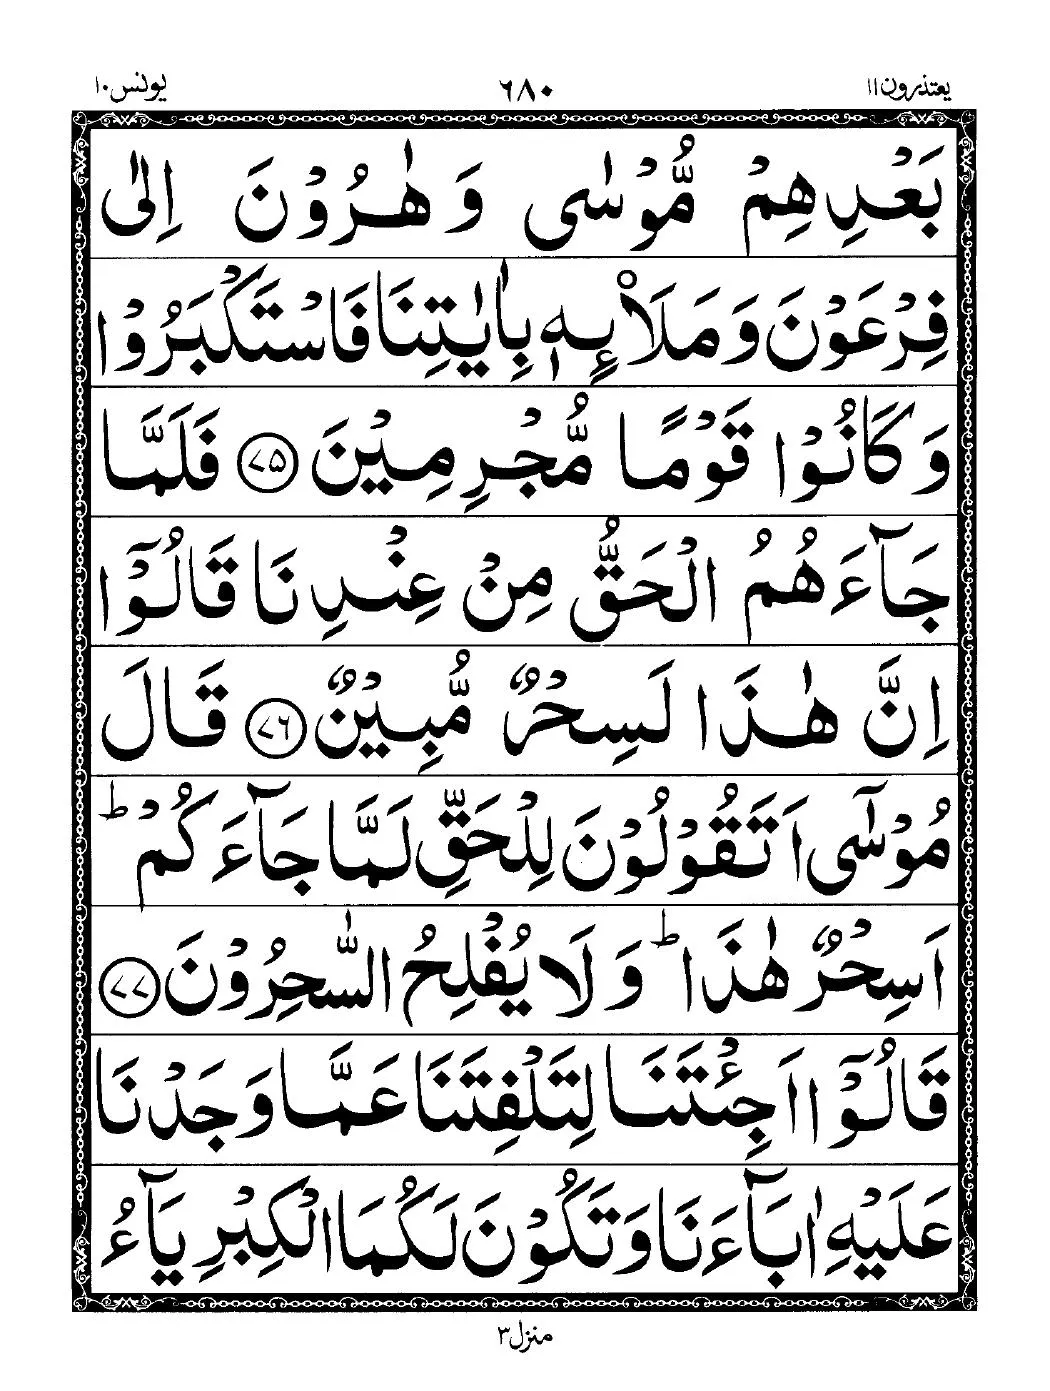 یعتذرون۱۱ ٦٨٠ یونس۱۰
بَعْدِهِمْ مُّوْسٰى وَهٰرُوْنَ اِلٰى
فِرْعَوْنَ وَمَلَا۟ئِهٖ بِاٰيٰتِنَا فَاسْتَكْبَرُوْا
وَكَانُوْا قَوْمًا مُّجْرِمِيْنَ ۷۵ فَلَمَّا
جَآءَهُمُ الْحَقُّ مِنْ عِنْدِنَا قَالُوْٓا
اِنَّ هٰذَا لَسِحْرٌ مُّبِيْنٌ ۷۶ قَالَ
مُوْسٰٓى اَتَقُوْلُوْنَ لِلْحَقِّ لَمَّا جَآءَكُمْ ؕ
اَسِحْرٌ هٰذَا ؕ وَلَا يُفْلِحُ السّٰحِرُوْنَ ۷۷
قَالُوْٓا اَجِئْتَنَا لِتَلْفِتَنَا عَمَّا وَجَدْنَا
عَلَيْهِ اٰبَآءَنَا وَتَكُوْنَ لَكُمَا الْكِبْرِيَآءُ
منزل۳